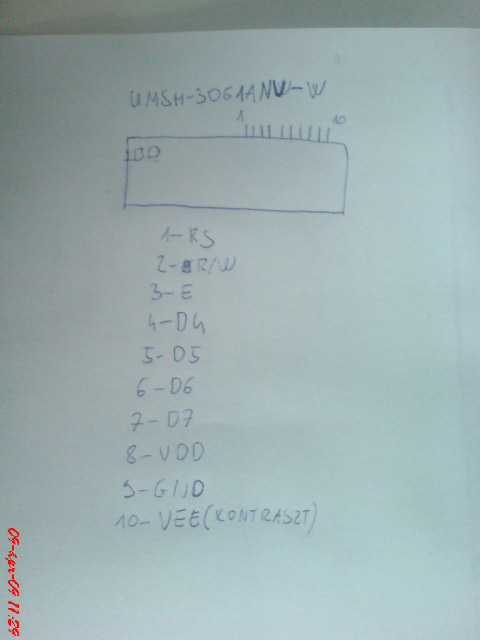 UMSH-3061ANW-W
1 10
1-RS
2-R/W
3-E
4-D4
5-D5
6-D6
7-D7
8-VDD
9-GND
10-VEE(KONTRASZT)